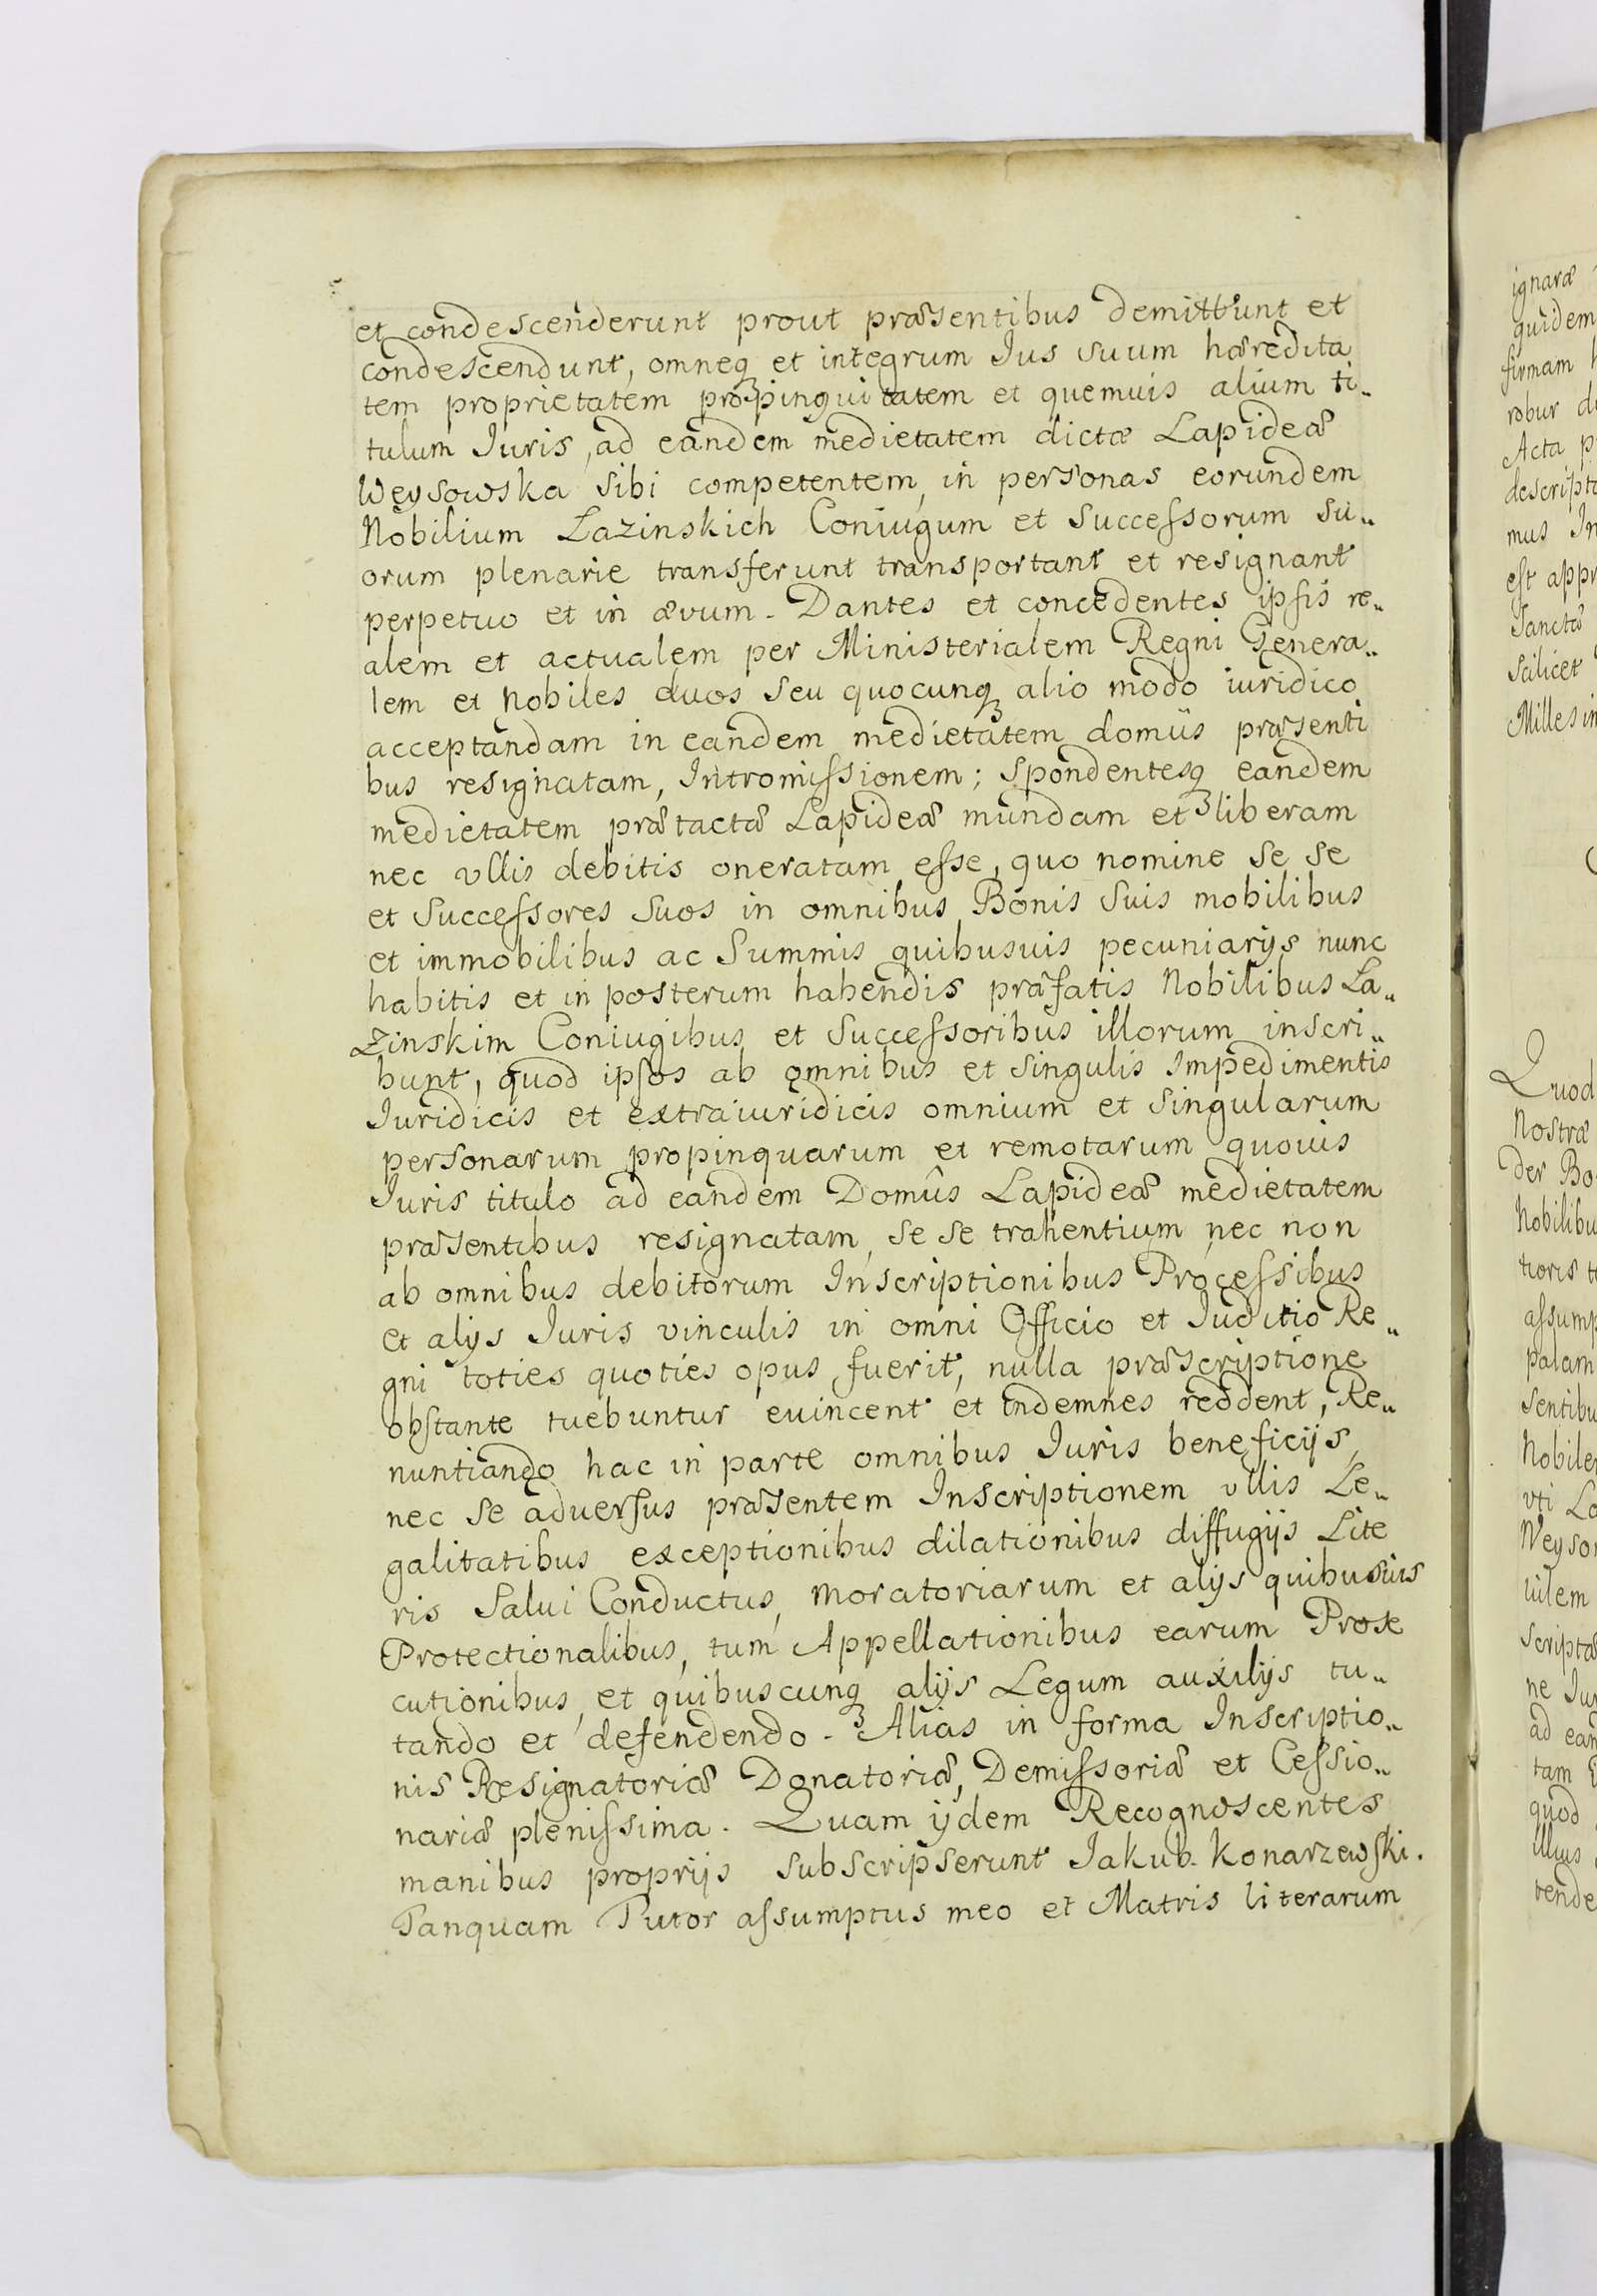 et condescenderunt prout præsentibus demittunt et
condescendunt, omneq₃ et integrum Ius suum hæredita
tem proprietatem propinquitatem et quemuis alium ti„
tulum Iuris, ad eandem medietatem dictæ Lapideæ
Weysowska sibi competentem, in personas eorundem
Nobilium Lazinskich Coniugum et Successorum su„
orum plenarie transferunt transportant et resignant
perpetuo et in ævum. Dantes et concedentes ipsis re„
alem et actualem per Ministerialem Regni Genera„
lem et Nobiles duos seu quocunq₃ alio modo iuridico
acceptandam in eandem medietatem domûs præsenti
bus resignatam, Intromissionem; Spondentesq₃ eandem
medietatem prætactæ Lapideæ mundam et liberam
nec vllis debitis oneratam esse, quo nomine se se
et Successores suos in omnibus Bonis suis mobilibus
et immobilibus ac Summis quibusuis pecuniarijs nunc
habitis et in posterum habendis præfatis Nobilibus La„
zinskim Coniugibus et Successoribus illorum inscri„
bunt, quod ipsos ab omnibus et singulis Impedimentis
Iuridicis et extraiuridicis omnium et singularum
personarum propinquarum et remotarum quouis
Iuris titulo ad eandem Domûs Lapideæ medietatem
præsentibus resignatam, se se trahentium nec non
ab omnibus debitorum Inscriptionibus Processibus
et alijs Iuris vinculis in omni Officio et Iuditio Re„
gni toties quoties opus fuerit, nulla præscriptione
obstante tuebuntur euincent et indemnes reddent, Re„
nuntiando hac in parte omnibus Iuris beneficijs,
nec se aduersus præsentem Inscriptionem vllis Le„
galitatibus exceptionibus dilationibus diffugijs Lite
ris Salui Conductus, Moratoriarum et alijs quibusuis
Protectionalibus, tum Appellationibus earum Prose
cutionibus, et quibuscunq₃ alijs Legum auxilijs tu„
tando et defendendo. Alias in forma Inscriptio„
nis Resignatoriæ Donatoriæ, Demissoriæ et Cessio„
nariæ plenissima. Quam ijdem Recognoscentes
manibus proprijs subscripserunt Iakub Konarzewski.
Tanquam Tutor assumptus meo et Matris literarum
ignaræ
quidem
firmam
robur
Acta
descript
mus In
est appr
Sanctæ
Scilicet
Millesim
Quod
Nostræ
der Bo
Nobilibu
tioris
assump
palam
sentibu
Nobile
vti La
Weyso
uilem
scriptæ
ne Iu
ad ean
tam
quod
illius
tende